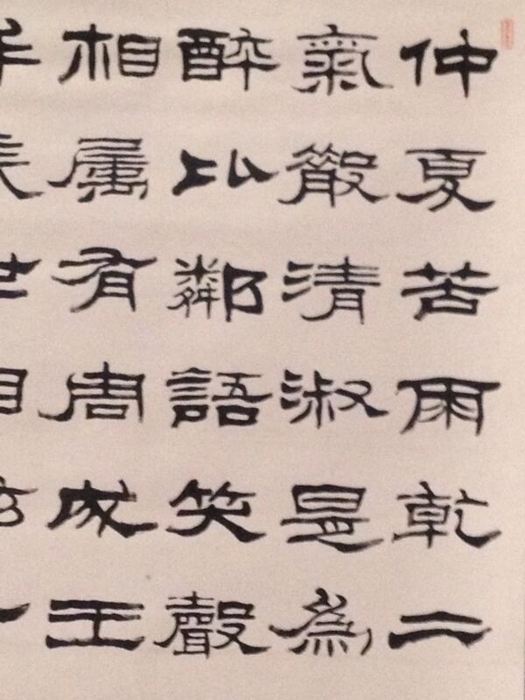 仲夏苦雨乾二
氣散清淑是為
醉比鄰語笑聲
相属有周成王